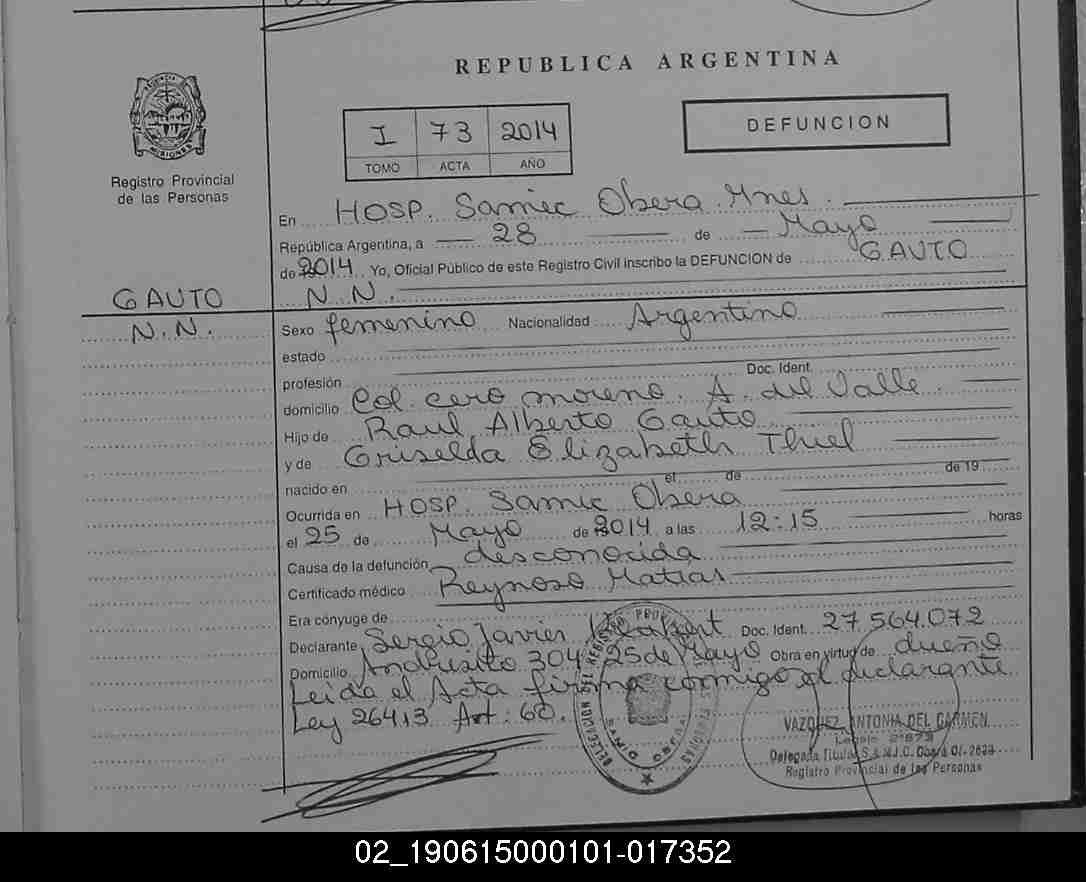 REPUBLICA ARGENTINA
I 73 2014
TOMO ACTA AÑO
DEFUNCION
PROVINCIA
MISIONES
Registro Provincial
de las Personas
GAUTO
N.N.
En Hosp. Samic Obera Mnes.
República Argentina, a 28 de Mayo
de 2014 Yo, Oficial Público de este Registro Civil inscribo la DEFUNCION de GAUTO
N. N.
Sexo femenino Nacionalidad Argentino
estado
profesión Doc. Ident.
domicilio Col. cero moreno. A. del Valle
Hijo de Raul Alberto Gauto
y de Griselda Elizabeth Thiel
nacido en el de de 19
Ocurrida en Hosp. Samic Obera
el 25 de Mayo de 2014 a las 12:15 horas
Causa de la defunción desconocida
Certificado médico Reynoso Matias
Era cónyuge de
Declarante Sergio Javier Doc. Ident. 27 564.072
Domicilio Andresito 304 25 de Mayo Obra en virtud de dueño
Leida el Acta firma conmigo el declarante
Ley 26413 Art: 60.
DELEGACION DEL REGISTRO PROV
VAZQUEZ ANTONIA DEL CARMEN
Delegada Titular
Registro Provincial de las Personas
02_190615000101-017352